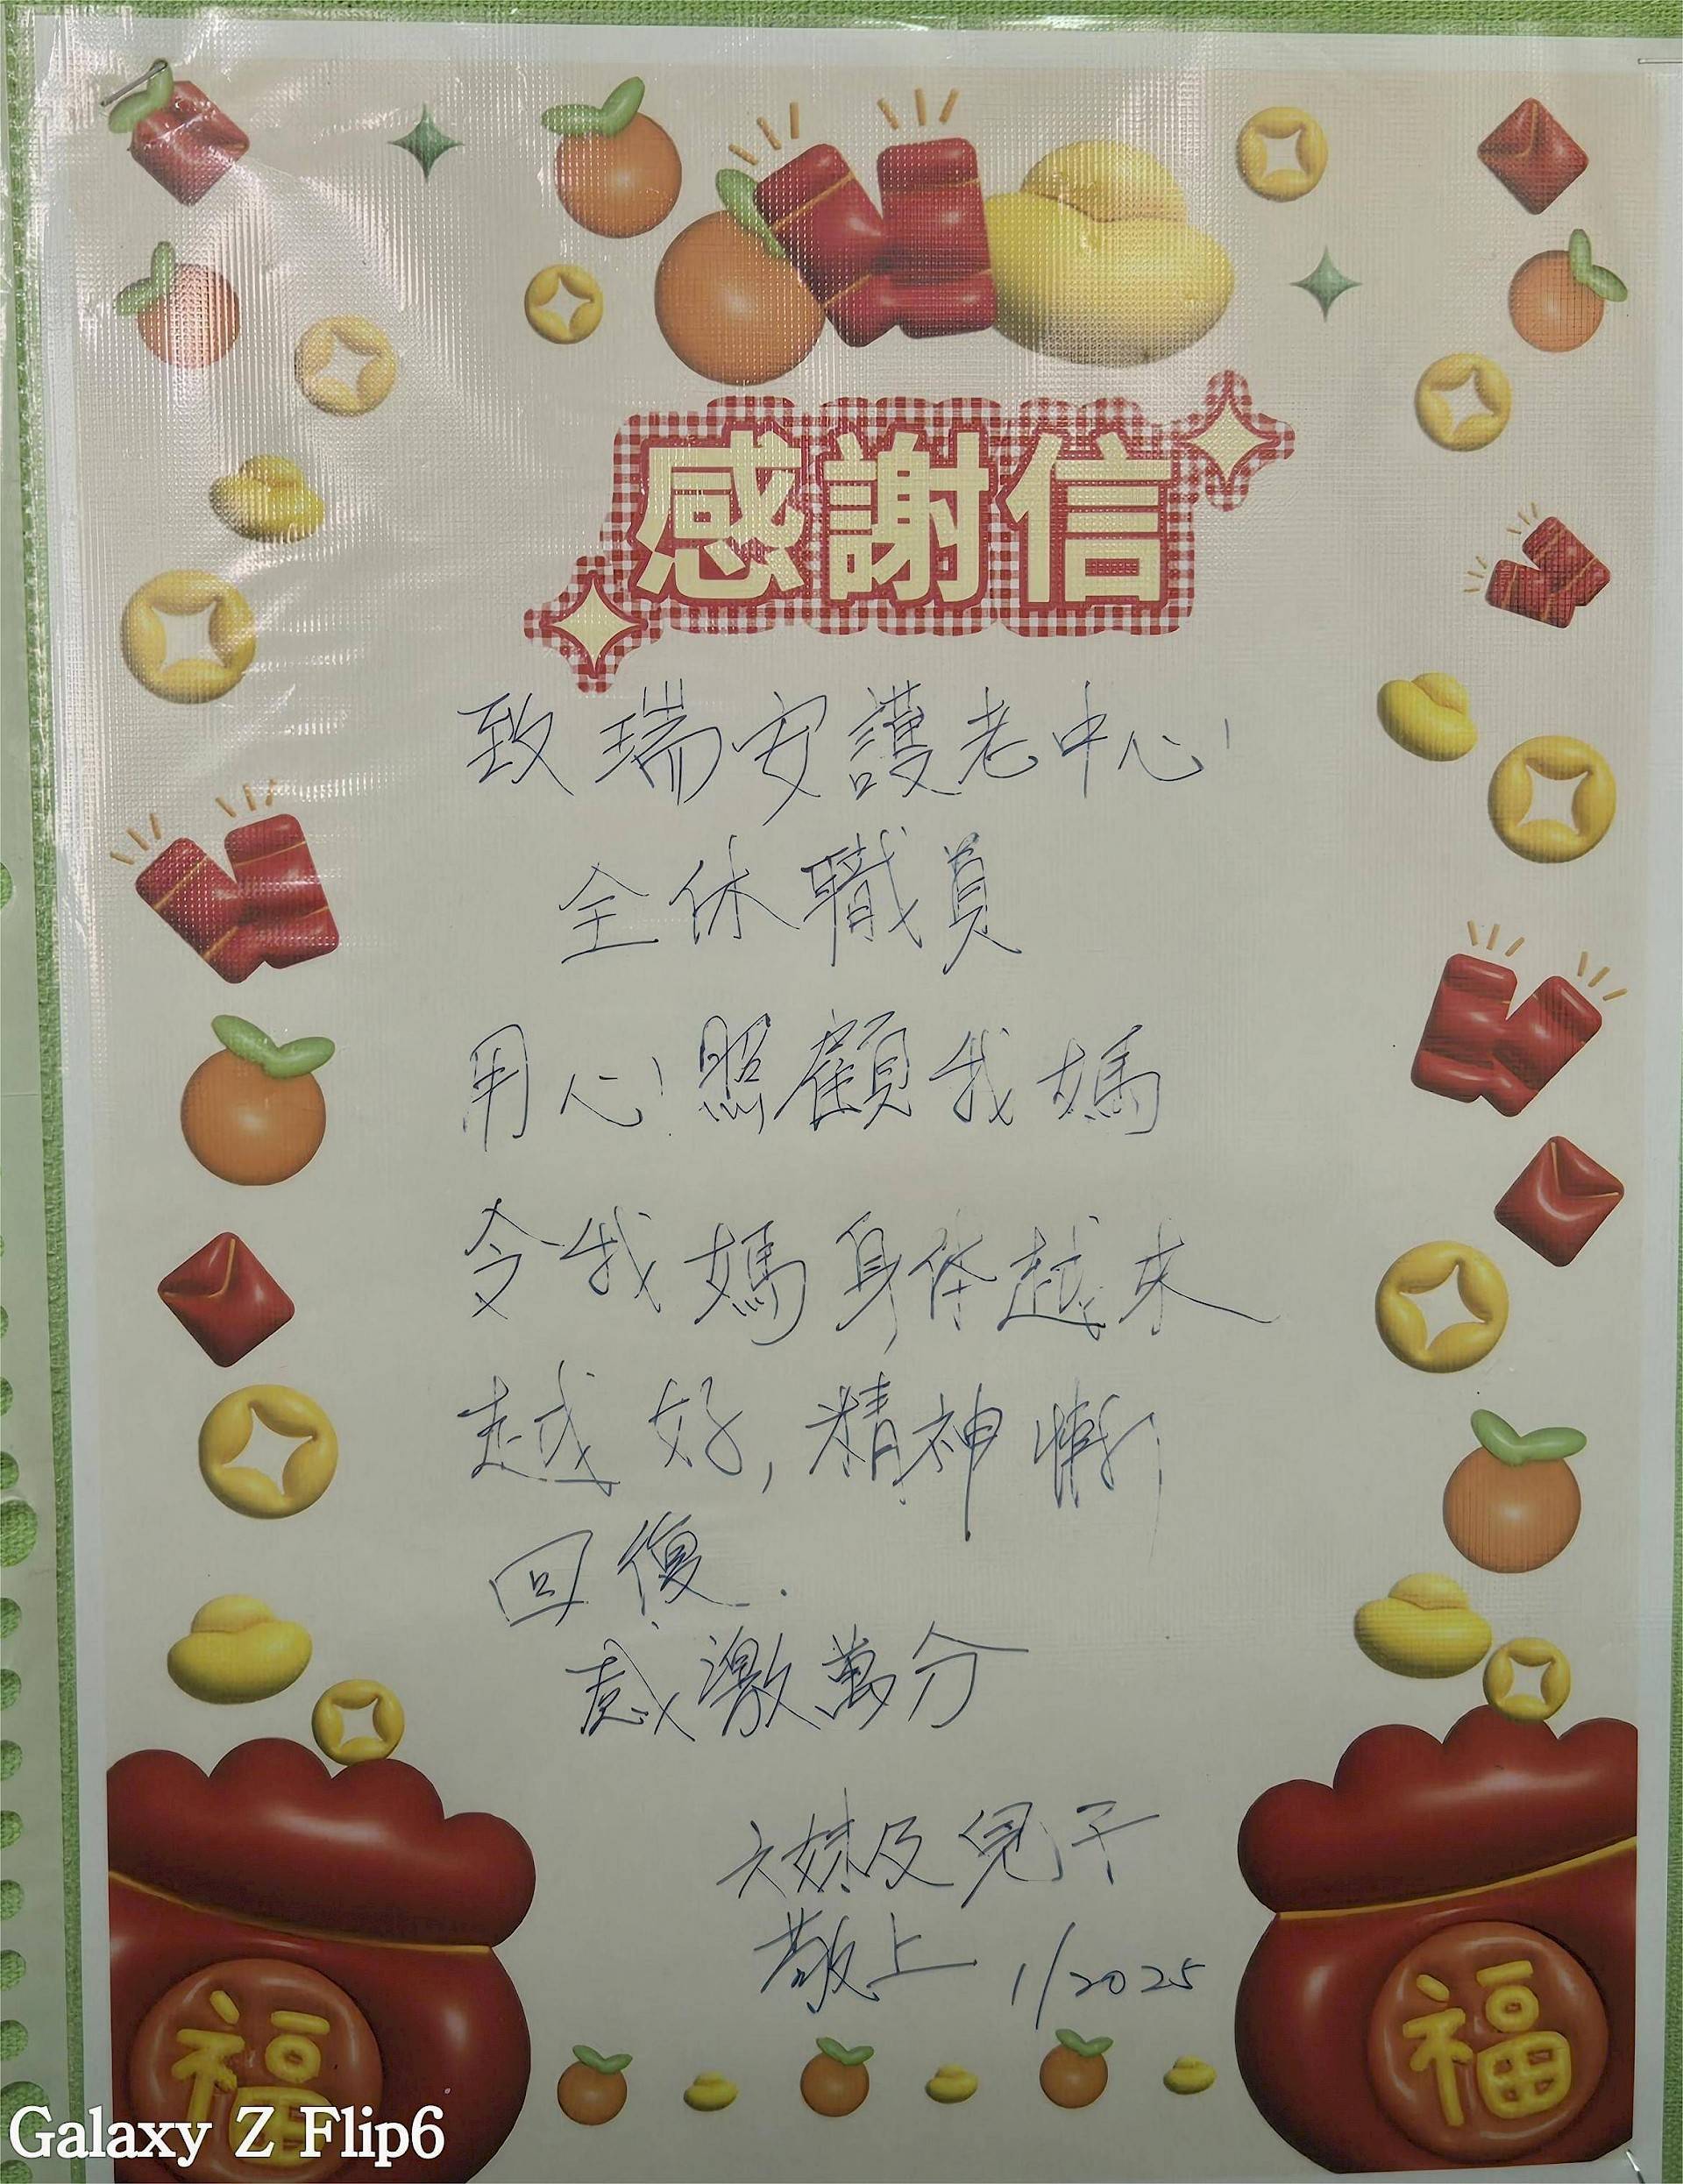 感謝信
致瑞安護老中心
全体職員
用心照顧我媽
令我媽身体越来
越好,精神慚
回復.
感激萬分
六妹及兒子
敬上 1/2025
福
福
Galaxy Z Flip6